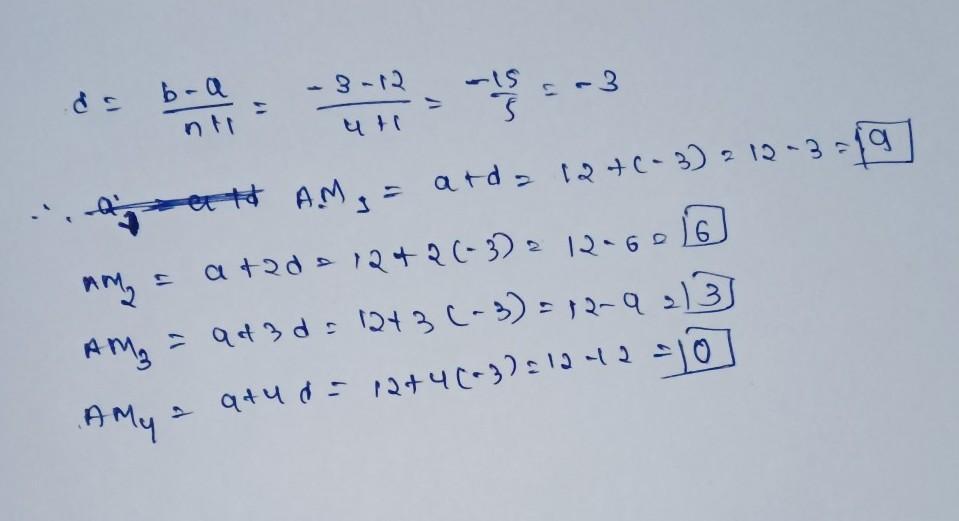 d = b-a/n+1 = -3-12/4+1 = -15/5 = -3
∴ AM1 = a+d = 12+(-3) = 12-3 = 9
AM2 = a+2d = 12+2(-3) = 12-6 = 6
AM3 = a+3d = 12+3(-3) = 12-9 = 3
AM4 = a+4d = 12+4(-3) = 12-12 = 0